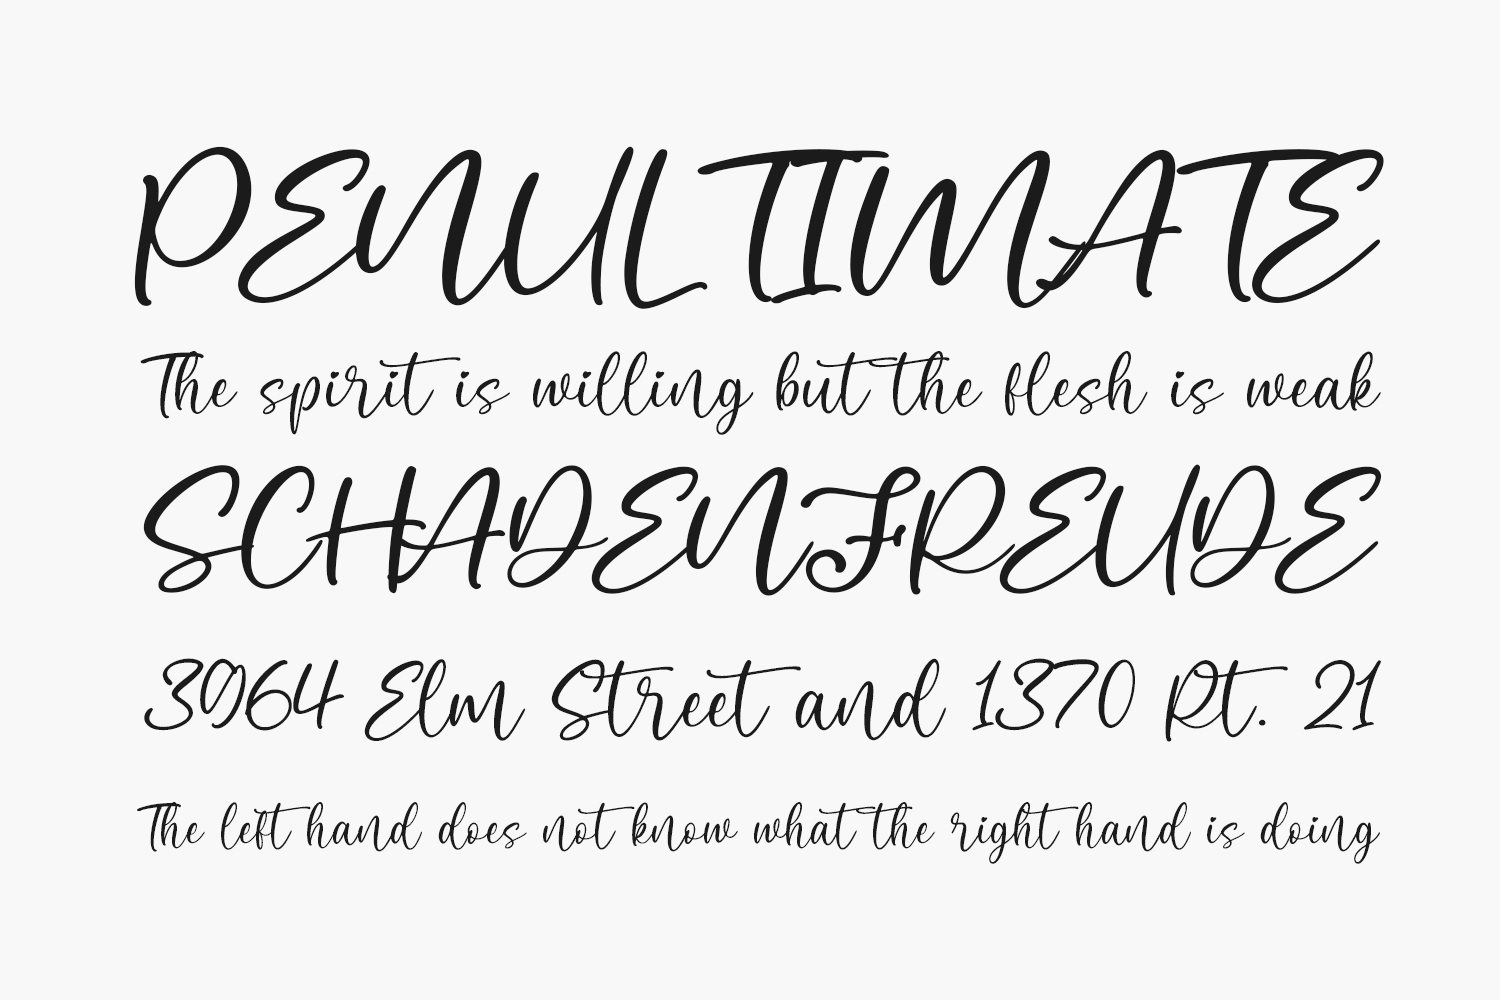 PENULTIMATE
The spirit is willing but the flesh is weak
SCHADENFREUDE
3964 Elm Street and 1370 Rt. 21
The left hand does not know what the right hand is doing